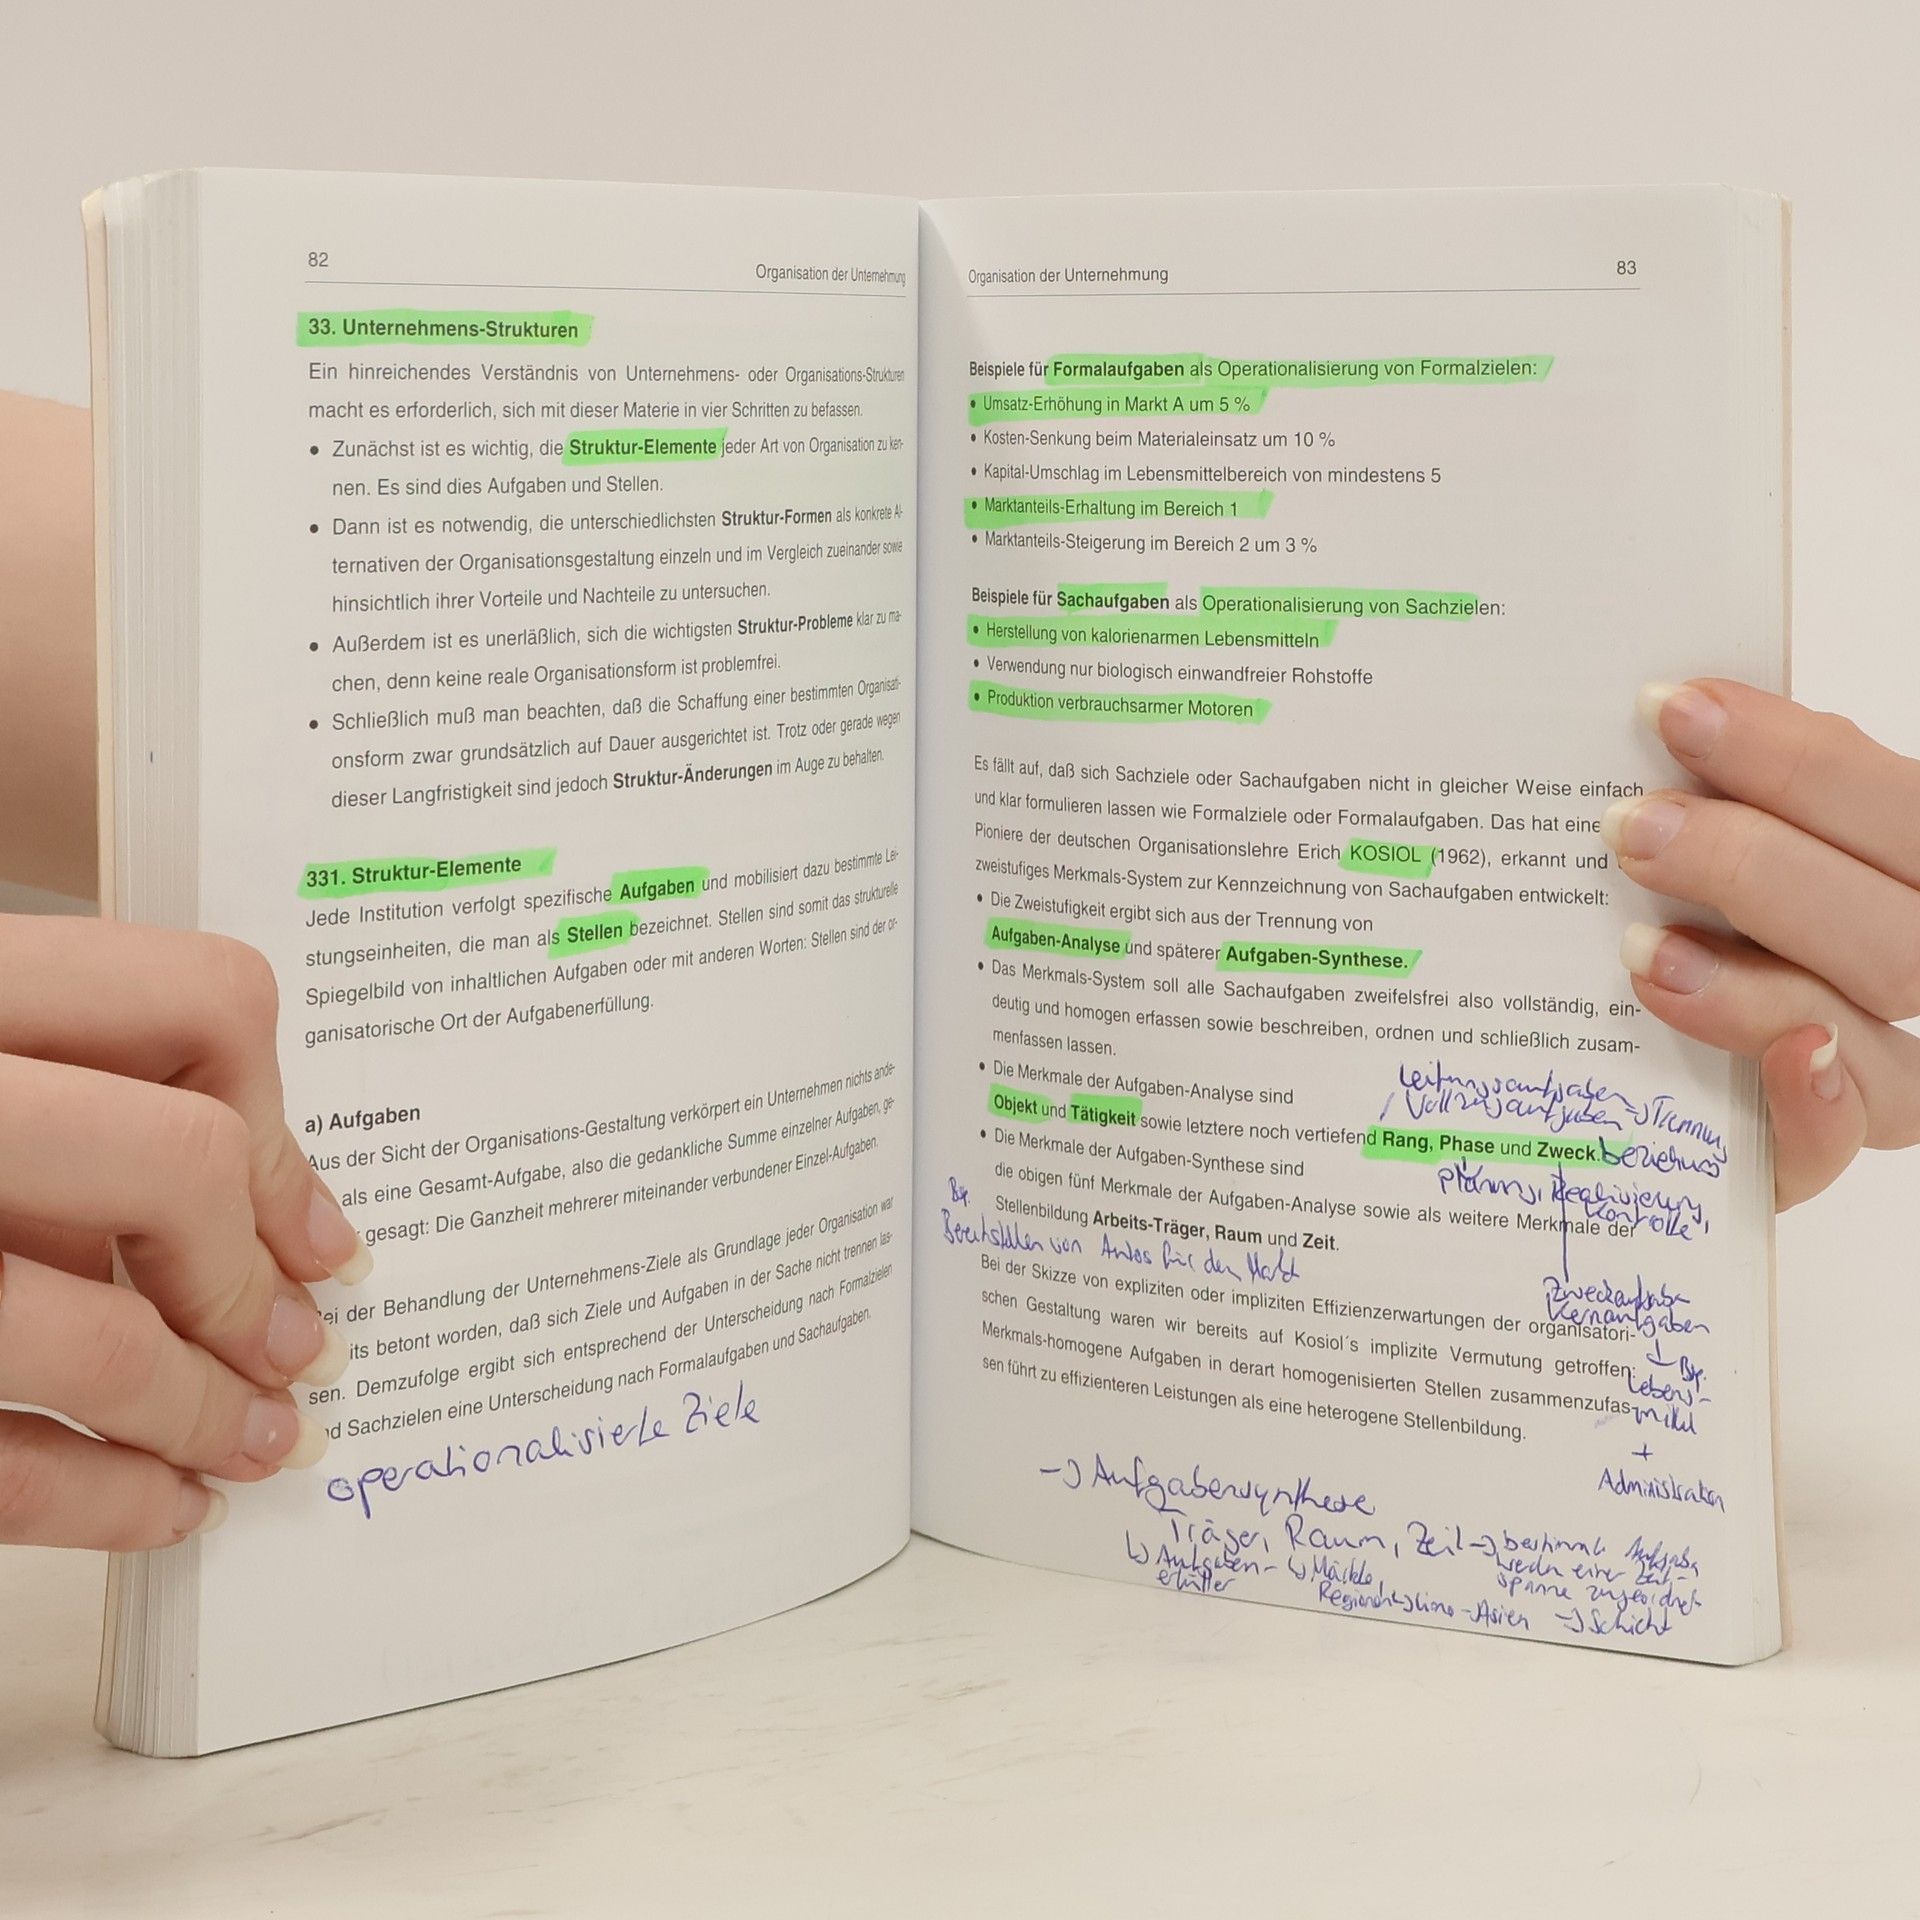 82
Organisation der Unternehmung
33. Unternehmens-Strukturen
Ein hinreichendes Verständnis von Unternehmens- oder Organisations-Strukturen
macht es erforderlich, sich mit dieser Materie in vier Schritten zu befassen.
• Zunächst ist es wichtig, die Struktur-Elemente jeder Art von Organisation zu ken-
nen. Es sind dies Aufgaben und Stellen.
• Dann ist es notwendig, die unterschiedlichsten Struktur-Formen als konkrete Al-
ternativen der Organisationsgestaltung einzeln und im Vergleich zueinander sowie
hinsichtlich ihrer Vorteile und Nachteile zu untersuchen.
• Außerdem ist es unerläßlich, sich die wichtigsten Struktur-Probleme klar zu ma-
chen, denn keine reale Organisationsform ist problemfrei.
• Schließlich muß man beachten, daß die Schaffung einer bestimmten Organisati-
onsform zwar grundsätzlich auf Dauer ausgerichtet ist. Trotz oder gerade wegen
dieser Langfristigkeit sind jedoch Struktur-Änderungen im Auge zu behalten.
331. Struktur-Elemente
Jede Institution verfolgt spezifische Aufgaben und mobilisiert dazu bestimmte Lei-
stungseinheiten, die man als Stellen bezeichnet. Stellen sind somit das strukturelle
Spiegelbild von inhaltlichen Aufgaben oder mit anderen Worten: Stellen sind der or-
ganisatorische Ort der Aufgabenerfüllung.
a) Aufgaben
Aus der Sicht der Organisations-Gestaltung verkörpert ein Unternehmen nichts ande-
als eine Gesamt-Aufgabe, also die gedankliche Summe einzelner Aufgaben, ge-
gesagt: Die Ganzheit mehrerer miteinander verbundener Einzel-Aufgaben.
ei der Behandlung der Unternehmens-Ziele als Grundlage jeder Organisation war
its betont worden, daß sich Ziele und Aufgaben in der Sache nicht trennen las-
sen. Demzufolge ergibt sich entsprechend der Unterscheidung nach Formalzielen
nd Sachzielen eine Unterscheidung nach Formalaufgaben und Sachaufgaben.
operationalisierte Ziele
Organisation der Unternehmung
83
Beispiele für Formalaufgaben als Operationalisierung von Formalzielen:
• Umsatz-Erhöhung in Markt A um 5 %
• Kosten-Senkung beim Materialeinsatz um 10 %
• Kapital-Umschlag im Lebensmittelbereich von mindestens 5
• Marktanteils-Erhaltung im Bereich 1
• Marktanteils-Steigerung im Bereich 2 um 3 %
Beispiele für Sachaufgaben als Operationalisierung von Sachzielen:
• Herstellung von kalorienarmen Lebensmitteln
• Verwendung nur biologisch einwandfreier Rohstoffe
• Produktion verbrauchsarmer Motoren
Es fällt auf, daß sich Sachziele oder Sachaufgaben nicht in gleicher Weise einfach
und klar formulieren lassen wie Formalziele oder Formalaufgaben. Das hat eine
Pioniere der deutschen Organisationslehre Erich KOSIOL (1962), erkannt und
zweistufiges Merkmals-System zur Kennzeichnung von Sachaufgaben entwickelt:
• Die Zweistufigkeit ergibt sich aus der Trennung von
Aufgaben-Analyse und späterer Aufgaben-Synthese.
• Das Merkmals-System soll alle Sachaufgaben zweifelsfrei also vollständig, ein-
deutig und homogen erfassen sowie beschreiben, ordnen und schließlich zusam-
menfassen lassen.
• Die Merkmale der Aufgaben-Analyse sind
Leitungsaufgaben
/ Vollzugsaufgaben → Trennung
Objekt und Tätigkeit sowie letztere noch vertiefend Rang, Phase und Zweck. beziehung
• Die Merkmale der Aufgaben-Synthese sind
Planung, Realisierung,
Kontrolle
die obigen fünf Merkmale der Aufgaben-Analyse sowie als weitere Merkmale der
Stellenbildung Arbeits-Träger, Raum und Zeit.
Bsp.
Bereitstellen von Autos für den Markt
Bei der Skizze von expliziten oder impliziten Effizienzerwartungen der organisatori-
schen Gestaltung waren wir bereits auf Kosiol´s implizite Vermutung getroffen:
Merkmals-homogene Aufgaben in derart homogenisierten Stellen zusammenzufas-
sen führt zu effizienteren Leistungen als eine heterogene Stellenbildung.
Zweckaufgabe
Kernaufgaben
↓ Bsp.
Lebens-
mittel
+
Administration
→ Aufgabensynthese
Träger, Raum, Zeit → bestimmte Aufgabe
↳ Aufgaben- ↳ Märkte, werden einer Zeit-
erfüller spanne zugeordnet
Asien → Schicht